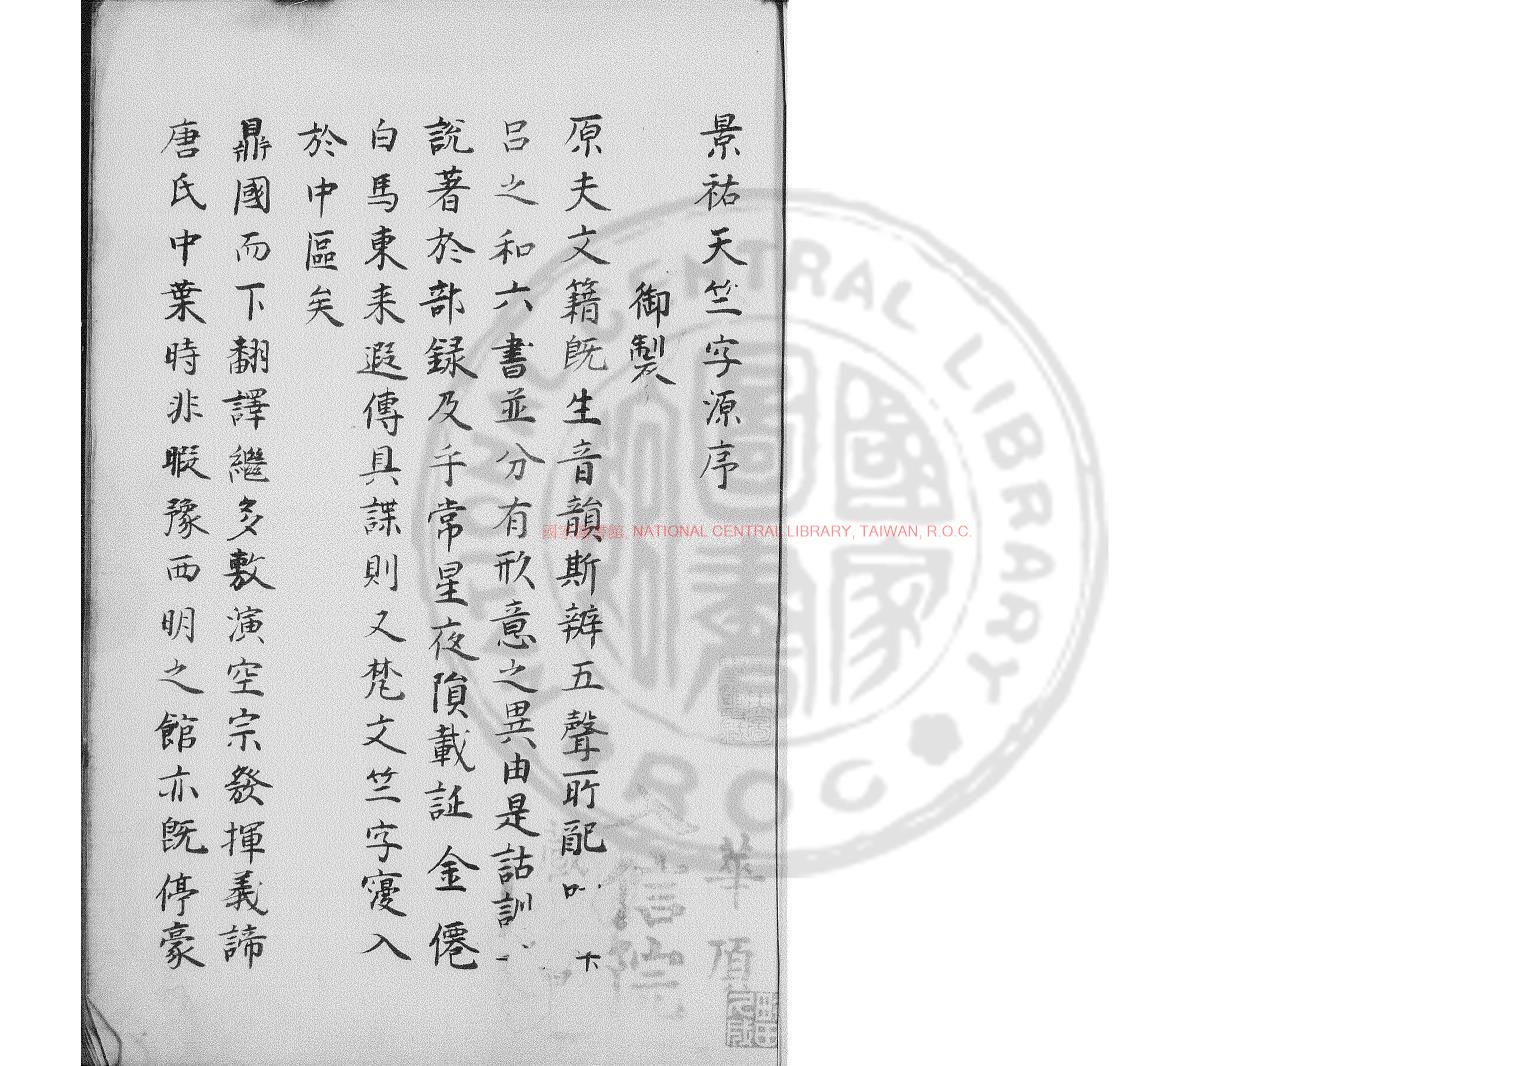 景祐天竺字源序
御製
原夫文籍既生音韻斯辨五聲所配
呂之和六書並分有形意之異由是詁訓
說著於部録及乎常星夜隕載証金僊
白馬東来遐傳具諜則又梵文竺字寖入
於中區矣
鼎國而下翻譯繼多敷演空宗發揮義諦
唐氏中葉時非暇豫西明之館亦既停豪
華頂
信院
國家圖書館, NATIONAL CENTRAL LIBRARY, TAIWAN, R.O.C.
NATIONAL CENTRAL LIBRARY
R O C
國家圖書